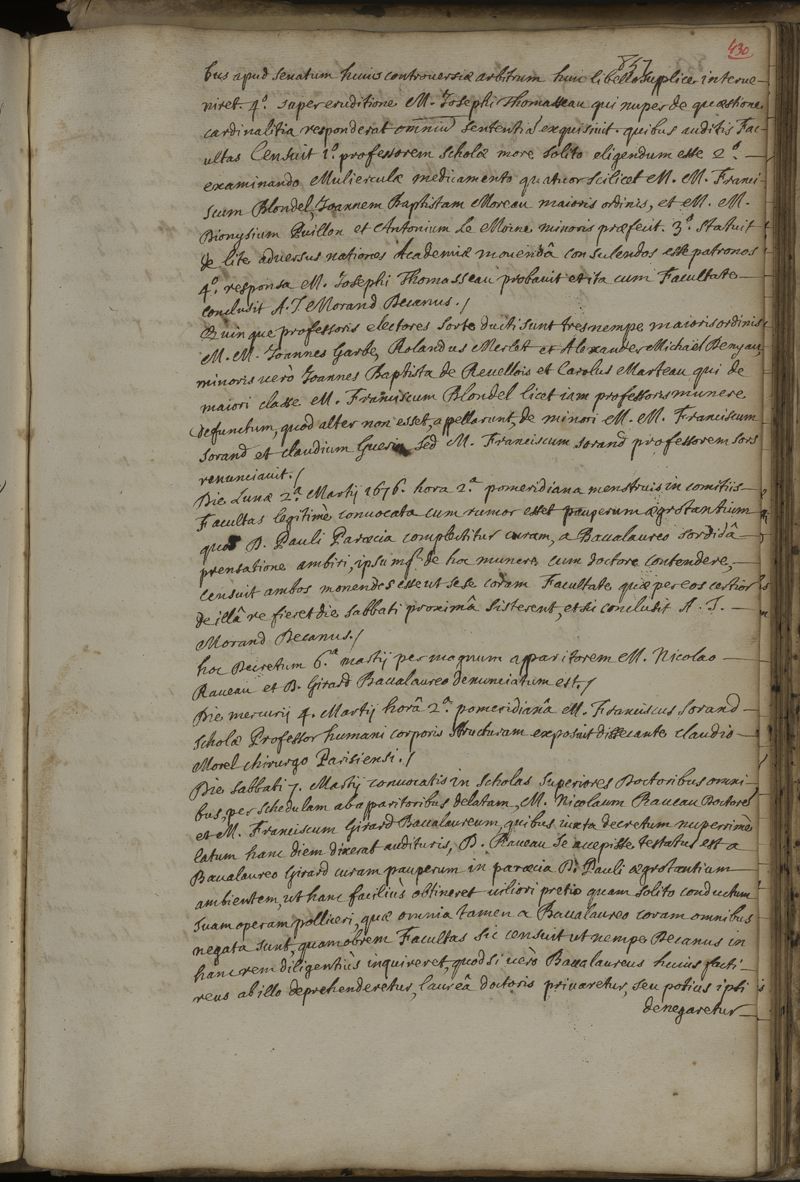 430
857
bus apud senatum huius controuersiæ arbitrum hunc libello supplice interue-
niret. 4.° super eruditione M. Josephi Thomasseau qui nuper de quæstione
cardinalitia responderat omniũ sententiã exquisiuit. quibus auditis Fac-
ultas Censuit 1.° professorem scholæ more solito eligendum esse 2.°
examinando Mulierculæ medicamento quatuor scilicet M. M. Franci-
scum Blondel, Joannem Baptistam Moreau maioris ordinis, et M. M.
Dionysium Puillon et Antonium Le Moine minoris præfecit. 3.° statuit
de lite aduersus nationes Academiæ mouendâ consulendos esse patronos
4.° responsa M. Josephi Thomasseau probauit et ita cum Facultate
conclusit A. J. Morand Decanus./
Quinque professoris electores sorte ducti sunt tres nempe maioris ordinis
M. M. Joannes Garbe, Rolandus Merlet et Alexander Michaël Denyau,
minoris uerò Joannes Baptista de Reuellois et Carolus Marteau qui de
maiori classe M. Franciscum Blondel licet iam professoris munere
defunctum, quod alter non esset, appellarunt, de minori M. M. Franciscum
Sorand et claudium Guerin sed M. Franciscum Sorand professorem sors
renunciauit./
Die Lunæ 2.a Martij 1676. hora 2.a pomeridiana menstruis in comitiis
Facultas legitimè conuocata cum rumor esset pauperum ægrotantium
quos D. Pauli Paræcia complectitur curam, a Baccalaureo sordidâ
prensatione ambiri, ipsumq. de hoc munere cum doctore contendere,
censuit ambos monendos esse ut sese coram Facultate quæ per eos certior
de illâ re fieret die sabbati proximâ sisterent, et sic conclusit A. J.
Morand Decanus./
hoc Decretum 6.a martij per magnum apparitorem M. Nicolao
Raueau et D. Girard Baccalaureo denunciatum est./
Die mercurij 4. Martij horâ 2.a pomeridianâ M. Franciscus Sorand
scholæ Professor humani corporis structuram exposuit dissecante claudio
Morel chirurgo Parisiensi./
Die Sabbati 7. Martij conuocatis in scholas superiores Doctoribus omni
bus, per schedulam ab apparitoribus delatam, M. Nicolaum Raueau Doctorem
et M. Franciscum Girard Baccalaureum, quibus iuxta decretum nuperrimè
latum hanc diem dixerat audituris, D. Raueau se accepisse testatus est a
Baccalaureo Girard curam pauperum in paræcia D. Pauli ægrotantium
ambientem, ut hanc faciliùs obtineret uiliori pretio quam solito conductum
suam operam polliceri, quæ omnia tamen a Baccalaureo coram omnibus
negata sunt, quamobrem Facultas sic censuit ut nempe Decanus in
hanc rem diligentiùs inquireret, quod si uerò Baccalaureus huius facti
reus ab illo deprehenderetur, laureâ doctoris priuaretur, seu potius ipsi
denegaretur